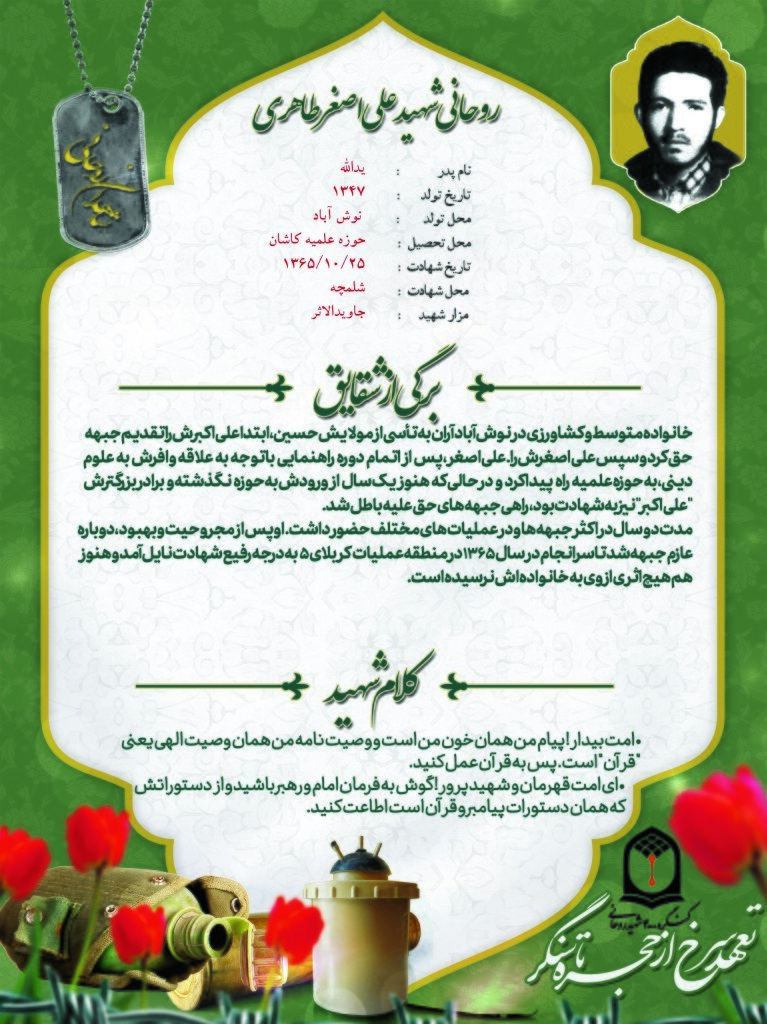 روحانی شهید علی اصغر طاهری
نام پدر : یدالله
تاریخ تولد : ۱۳۴۷
محل تولد : نوش آباد
محل تحصیل : حوزه علمیه کاشان
تاریخ شهادت : ۱۳۶۵/۱۰/۲۵
محل شهادت : شلمچه
مزار شهید : جاویدالاثر
برگی از شقایق
خانواده متوسط و کشاورزی در نوش آباد آران به تأسی از مولایش حسین، ابتدا علی اکبرش را تقدیم جبهه
حق کرد و سپس علی اصغرش را. علی اصغر، پس از اتمام دوره راهنمایی با توجه به علاقه وافرش به علوم
دینی، به حوزه علمیه راه پیدا کرد و در حالی که هنوز یک سال از ورودش به حوزه نگذشته و برادر بزرگترش
"علی اکبر" نیز به شهادت بود، راهی جبهه های حق علیه باطل شد.
مدت دو سال در اکثر جبهه ها و در عملیات های مختلف حضور داشت. او پس از مجروحیت و بهبود، دوباره
عازم جبهه شد تا سرانجام در سال ۱۳۶۵ در منطقه عملیات کربلای ۵ به درجه رفیع شهادت نایل آمد و هنوز
هم هیچ اثری از وی به خانواده اش نرسیده است.
کلام شهید
•امت بیدار! پیام من همان خون من است و وصیت نامه من همان وصیت الهی یعنی
"قرآن" است. پس به قرآن عمل کنید.
•ای امت قهرمان و شهید پرور! گوش به فرمان امام و رهبر باشید و از دستوراتش
که همان دستورات پیامبر و قرآن است اطاعت کنید.
تعهد سرخ از حجره تا سنگر